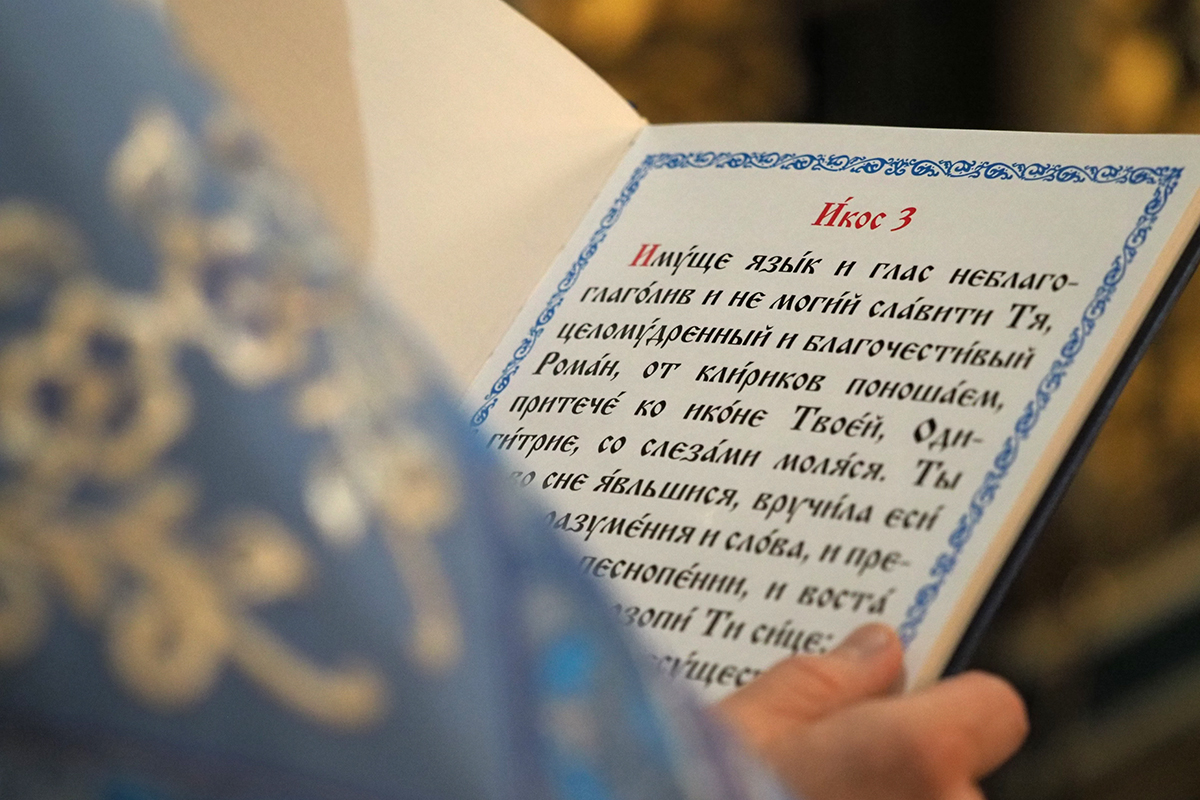 И́кос 3
Иму́ще язы́к и глас неблаго-
глаго́лив и не моги́й сла́вити Тя,
целому́дренный и благочести́вый
Рома́н, от кли́риков поноша́ем,
притече́ ко ико́не Твое́й, Оди-
ги́трие, со слеза́ми моля́ся. Ты
во сне я́вльшися, вручи́ла еси́
разуме́ния и сло́ва, и пре-
песнопе́нии, и воста́
Ти си́це: